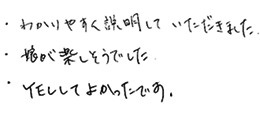 ・わかりやすく説明していただきました。
・娘が楽しそうでした。
・してよかったです。